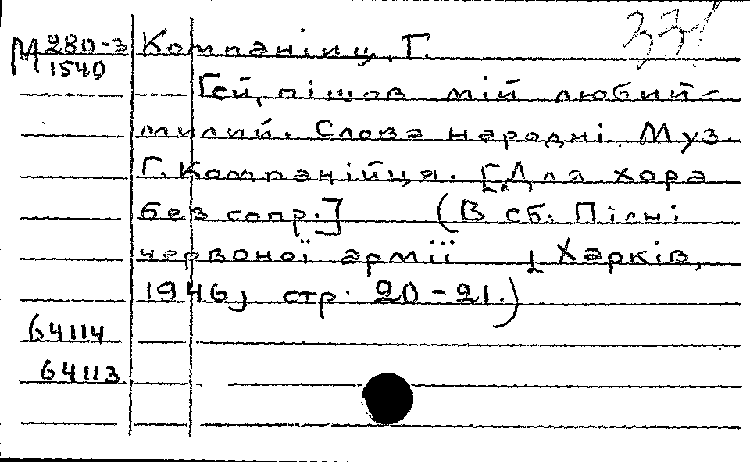 331
М 280-3
1540
Компанієць, Г.
Гей, пішов мій любий-
милий. Слова народні. Муз.
Г. Компанійця. [Для хора
без супр.] (В сб. Пісні
червоної армії Харків,
1946, стр. 20-21.)
64114
64113